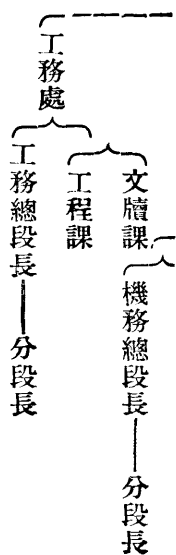 工務處
文牘課
工程課
工務總段長——分段長
機務總段長——分段長